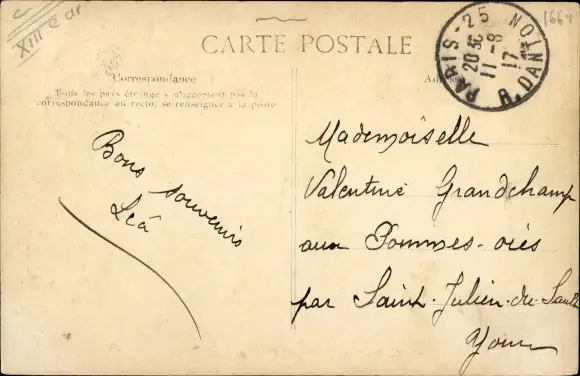 XIIIe ar
1664
CARTE POSTALE
PARIS-25 R. DANTON
20 30
11-8
17
Correspondance
Tous les pays étrangers n'acceptent pas la
correspondance au recto, se renseigner à la poste
Bons souvenirs
Léa
Mademoiselle
Valentine Grandchamp
aux Pommes-
par Saint-Julien-du-Sault
Yonne